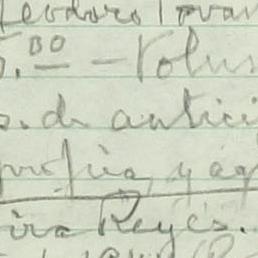 Teodoro Tovar
5.⁰⁰ — Volus
s. de antici
profira, y aq
ira Reyes.